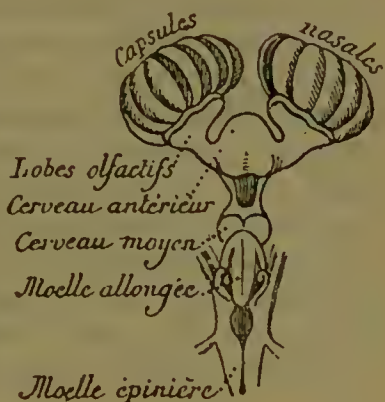 Capsules nasales
Lobes olfactifs
Cerveau antérieur
Cerveau moyen
Moelle allongée
Moelle épinière